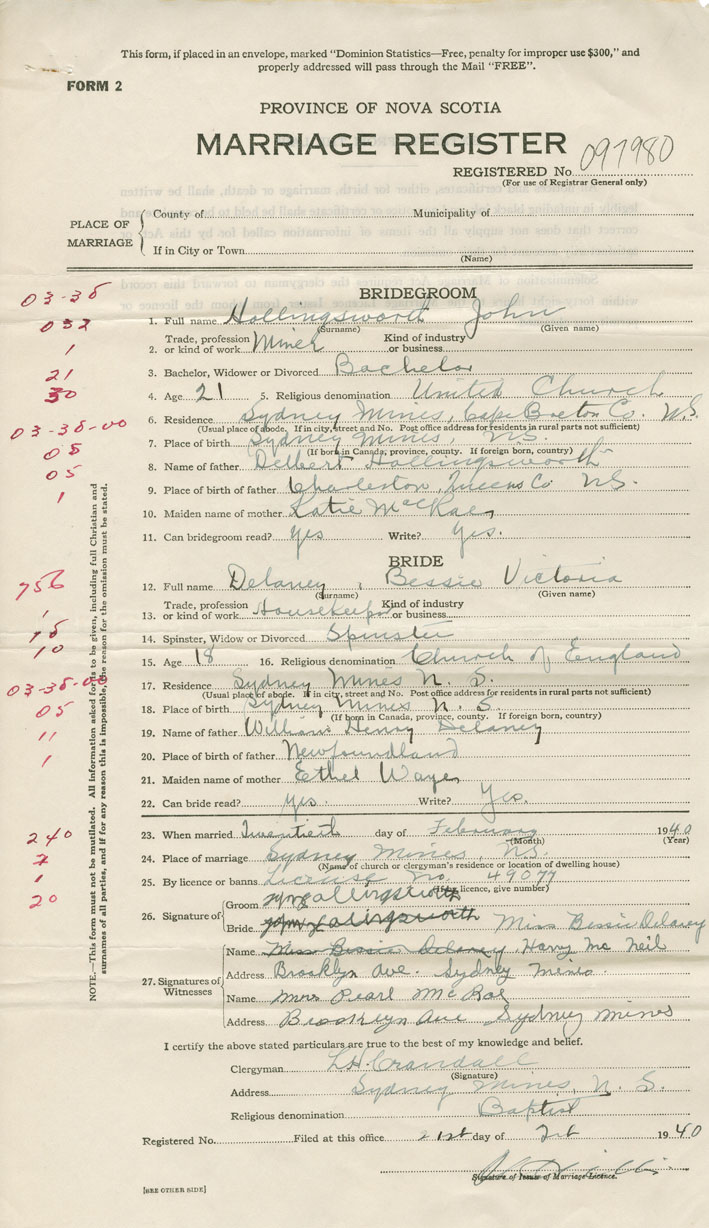 This form, if placed in an envelope, marked "Dominion Statistics—Free, penalty for improper use $300," and
properly addressed will pass through the Mail "FREE".
FORM 2
PROVINCE OF NOVA SCOTIA
MARRIAGE REGISTER
REGISTERED No. 097980
(For use of Registrar General only)
PLACE OF MARRIAGE
County of Municipality of
If in City or Town
(Name)
BRIDEGROOM
03-38
1. Full name Hollingsworth John
(Surname) (Given name)
032
2. Trade, profession or kind of work Miner Kind of industry or business
1
3. Bachelor, Widower or Divorced Bachelor
21
4. Age 21 5. Religious denomination United Church
30
6. Residence Sydney Mines, Cape Breton Co. N.S.
(Usual place of abode. If in city, street and No. Post office address for residents in rural parts not sufficient)
03-38-00
7. Place of birth Sydney Mines, N.S.
(If born in Canada, province, county. If foreign born, country)
05
8. Name of father Delbert Hollingsworth
05
9. Place of father Charleston, Queens Co. N.S.
1
10. Maiden name of mother Katie McRae
11. Can bridegroom read? yes Write? Yes.
BRIDE
756
12. Full name Delaney, Bessie Victoria
(Surname) (Given name)
1
13. Trade, profession or kind of work Housekeeper Kind of industry or business
18
14. Spinster, Widow or Divorced Spinster
10
15. Age 18 16. Religious denomination Church of England
03-38-00
17. Residence Sydney Mines N. S.
(Usual place of abode. If in city, street and No. Post office address for residents in rural parts not sufficient)
05
18. Place of birth Sydney Mines N. S.
(If born in Canada, province, county. If foreign born, country)
11
19. Name of father William Henry Delaney
1
20. Place of birth of father Newfoundland
21. Maiden name of mother Ethel Waye
22. Can bride read? yes. Write? Yes.
240
23. When married Twentieth day of February 1940
(Month) (Year)
2
24. Place of marriage Sydney Mines, N.S.
(Name of church or clergyman's residence or location of dwelling house)
1
25. By licence or banns License No. 49077
(If by licence, give number)
20
26. Signature of
Groom
Bride Miss Bessie Delaney
27. Signatures of Witnesses
Name Miss Bessie Delaney, Harry Mc Neil
Address Brooklyn Ave. Sydney Mines.
Name Mrs Pearl McRae
Address Brooklyn Ave Sydney Mines
NOTE.—This form must not be mutilated. All information asked for is to be given, including full Christian and
surnames of all parties, and if for any reason this is impossible, the reason for the omission must be stated.
I certify the above stated particulars are true to the best of my knowledge and belief.
Clergyman L.H. Crandall
(Signature)
Address Sydney Mines, N. S.
Religious denomination Baptist
Registered No. Filed at this office 21st day of Feb 1940
Signature of Issuer of Marriage Licence.
[SEE OTHER SIDE]